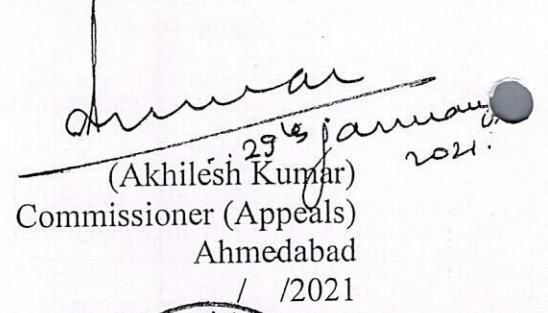 29th January
2021.
(Akhilesh Kumar)
Commissioner (Appeals)
Ahmedabad
/ /2021